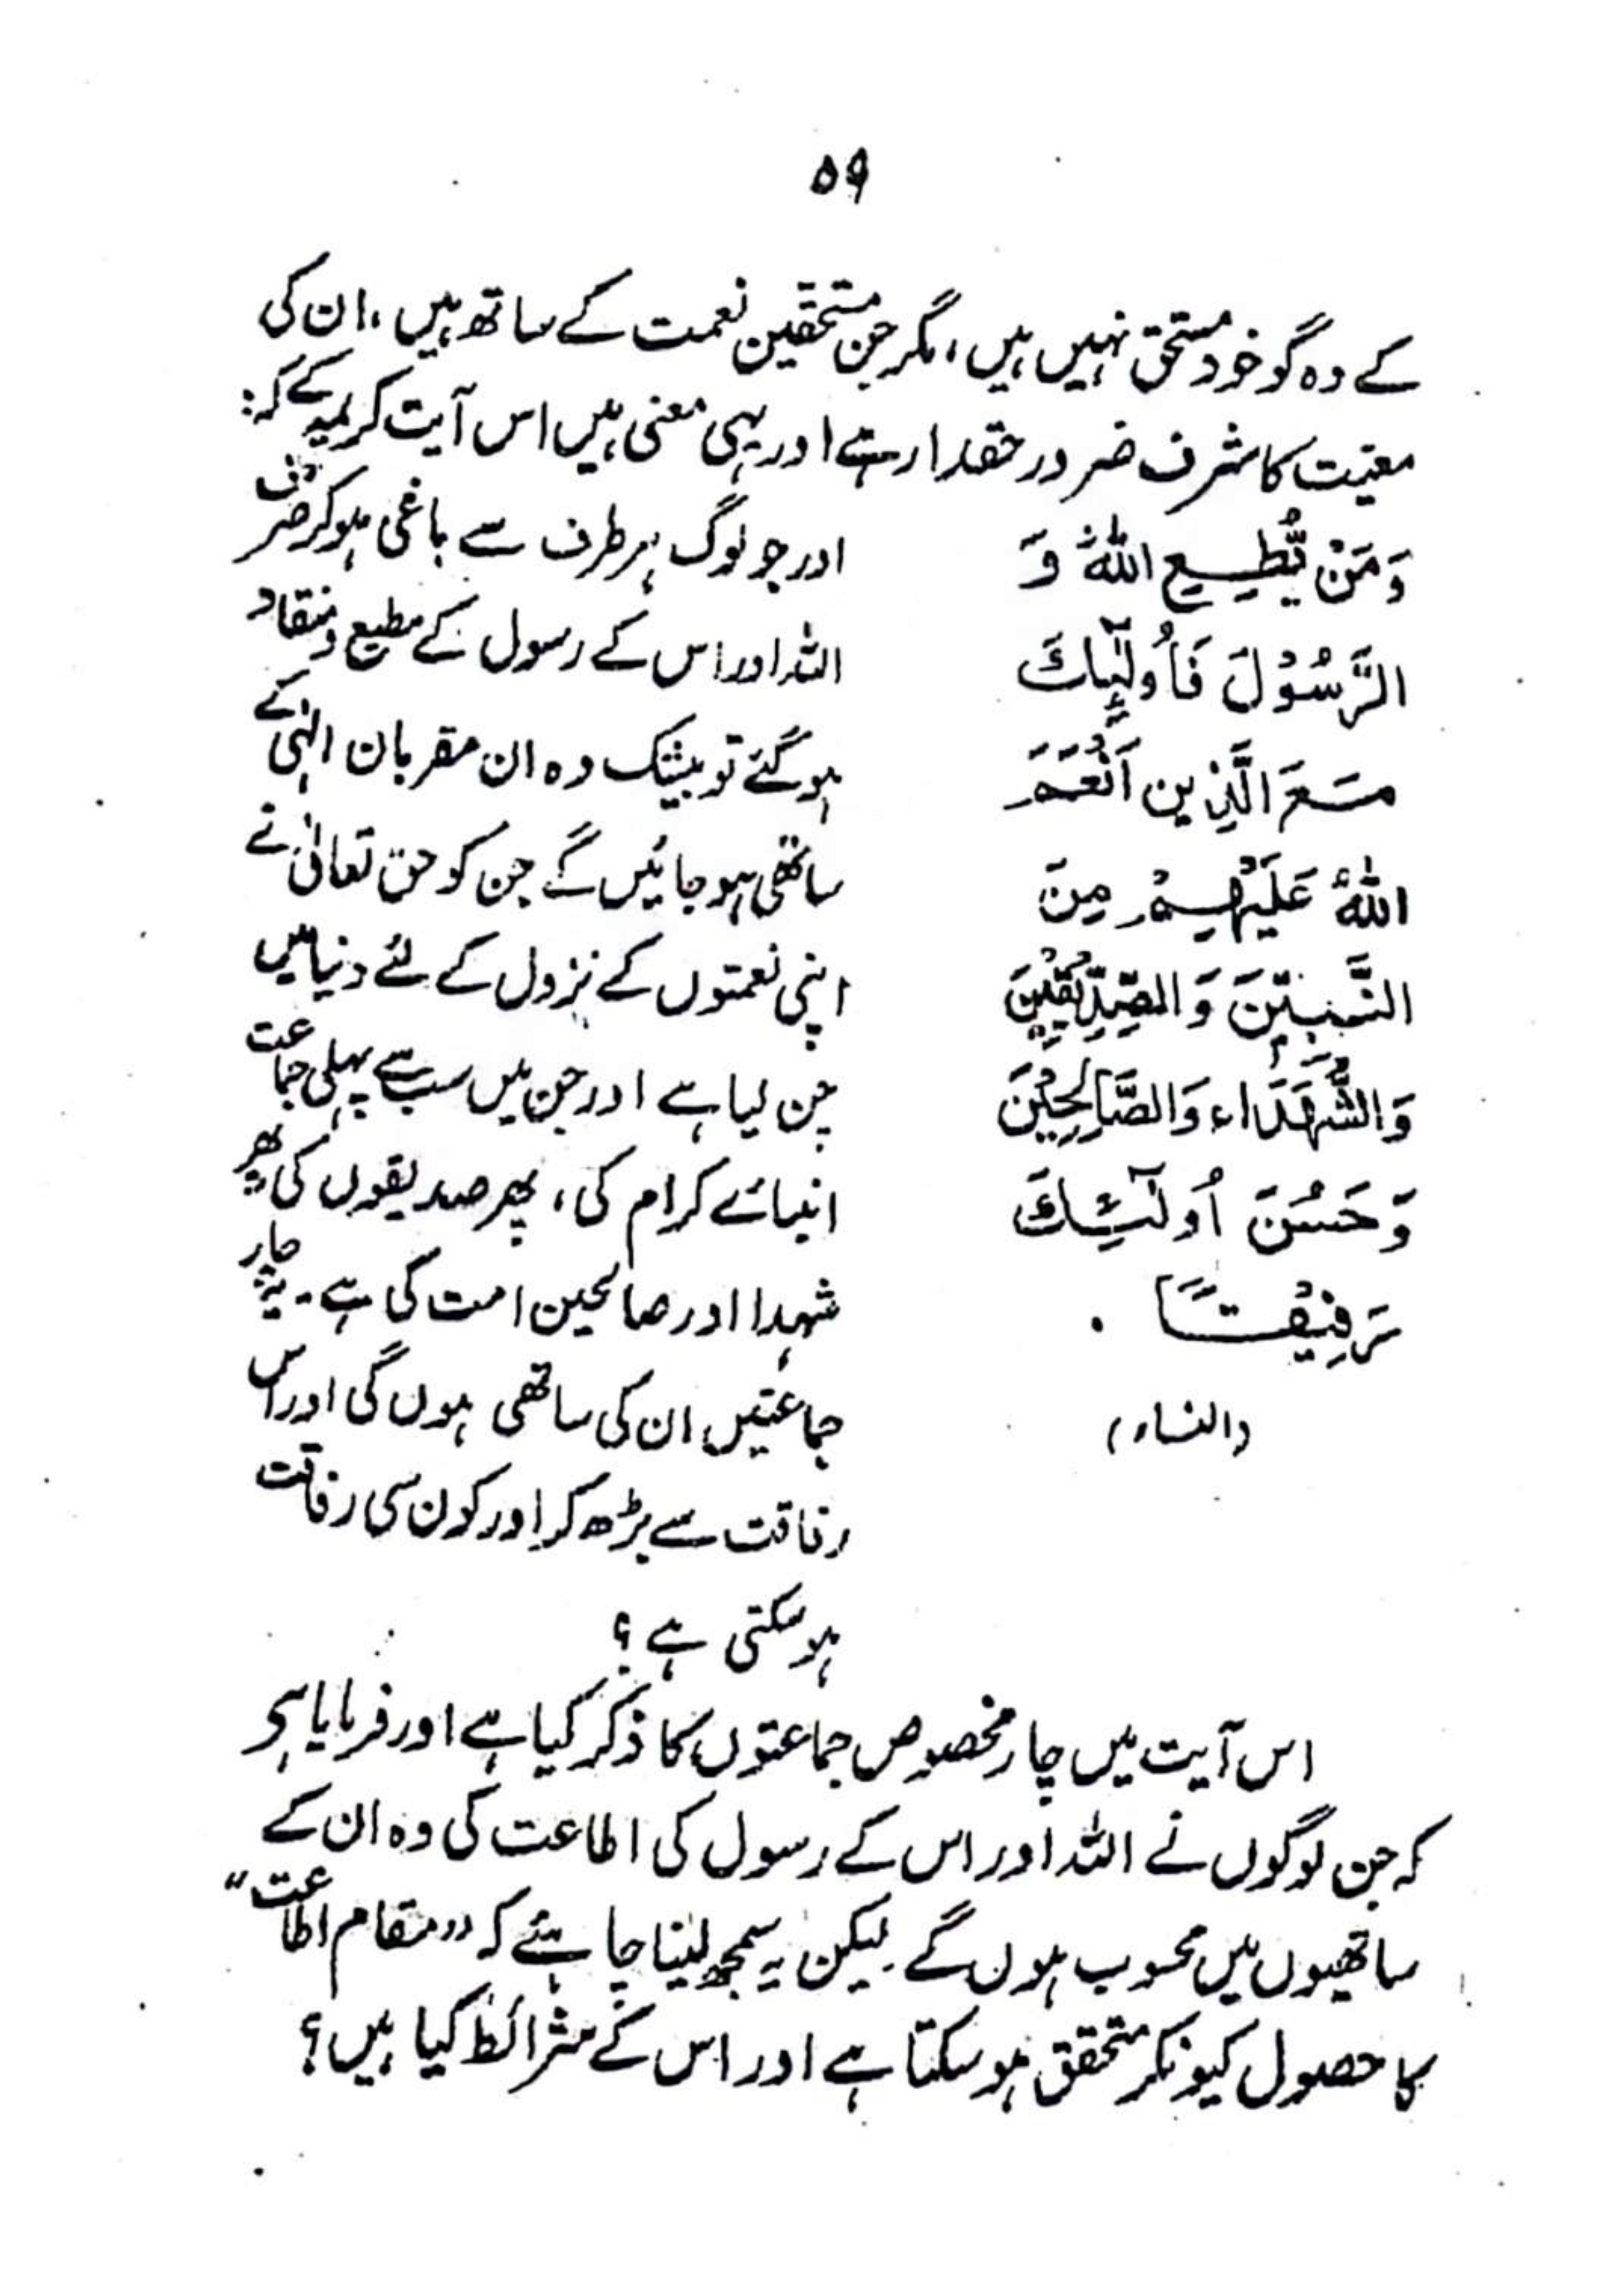 ۵۹
کے وہ گو خود مستحق نہیں ہیں، مگر جن مستحقین نعمت کے ساتھ ہیں، ان کی
معیت کا شرف ضرور حقدار ہے اور یہی معنی ہیں اس آیت کریمہ کے کہ:
وَمَنْ يُّطِيعِ اللهَ وَ
الرَّسُوْلَ فَأُولٰٓئِكَ
مَعَ الَّذِين اَنْعَمَ
اللهُ عَلَيْهِمْ مِنَ
النَّبِيّٖنَ وَالصِّدِّيْقِيْنَ
وَالشُّهَدَاءِ وَالصَّالِحِيْنَ
وَحَسُنَ أُولٰٓئِكَ
رَفِيْقًا .
(النساء)
اور جو لوگ ہر طرف سے باغی ہو کر صرف
اللہ اور اس کے رسول کے مطیع و منقاد
ہو گئے تو بیشک وہ ان مقربان الٰہی کے
ساتھی ہو جائیں گے جن کو حق تعالیٰ نے
اپنی نعمتوں کے نزول کے لئے دنیا میں
چن لیا ہے اور جن میں سب سے پہلی جماعت
انبیائے کرام کی، پھر صدیقوں کی پھر
شہدا اور صالحین امت کی ہے۔ یہ چار
جماعتیں ان کی ساتھی ہوں گی اور اس
رفاقت سے بڑھ کر اور کون سی رفاقت
ہو سکتی ہے؟
اس آیت میں چار مخصوص جماعتوں کا ذکر کیا ہے اور فرمایا ہے
کہ جن لوگوں نے اللہ اور اس کے رسول کی اطاعت کی وہ ان کے
ساتھیوں میں محسوب ہوں گے۔ لیکن یہ سمجھ لینا چاہئے کہ "مقام اطاعت"
کا حصول کیونکر متحقق ہو سکتا ہے اور اس کے شرائط کیا ہیں؟